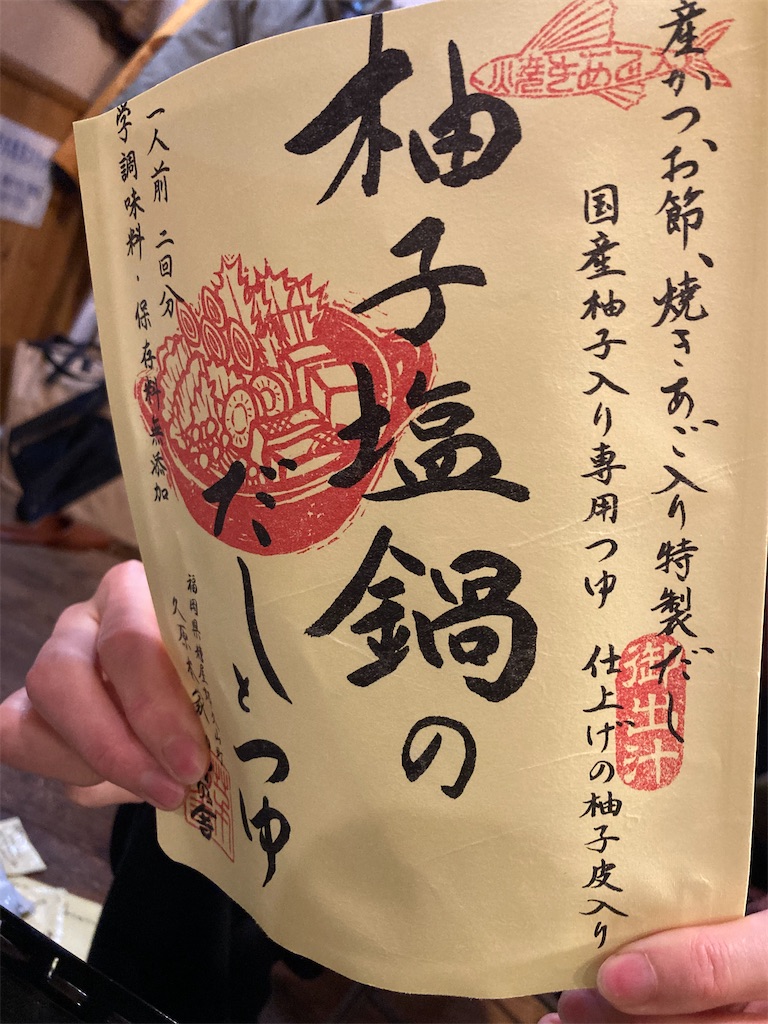 産かつお節、焼きあご入り特製だし
国産柚子入り専用つゆ 仕上げの柚子皮入り
焼きあご
御出汁
柚子塩鍋の
だしとつゆ
一人前 二回分
学調味料・保存料無添加
福岡県糟屋郡
久原本
舎